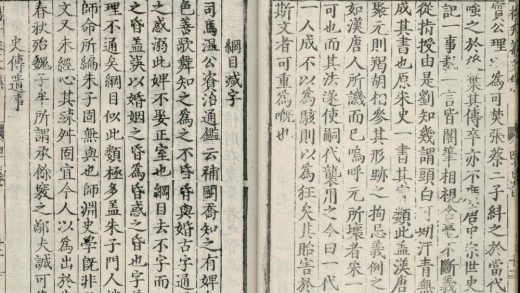 實公理為可焚張蔡二子糾之於當代
唾之於葉其傳卒亦不中宗世史
記一事載一言皆閣筆相視含毫不斷義
從指授由是劉知幾謂頭白可汗青無
成其書也原朱史一書其類此盖漢唐
聚元則芻胡松參其形跡之拘忌義例之
如漢唐人所譏而巳嗚呼元所壞者朱一
可也而其法遂使嗣代襲用之今曰一代
一人成不以為駭則以為狂矣其貽害於
斯文者可重為嘅也
綱目減字
司馬溫公資治通鑑云補闕喬知之有婢
色善歌舞知之為之不昏昏與婚古字通
之惑溺此婢不娶正室也綱目去不字而
之昏盖誤以婚姻之昏為昏惑之昏也字
理不通矣綱目似此類極多盖朱子門人
師命所編朱子固無與也師淵史學旣非
文又未經心其踳舛固宜今人以為出於
春秋殆魏子年所謂承餘竅之鄙夫誠可
史傳遺事